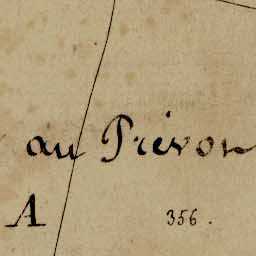 au Prévon
A 356.